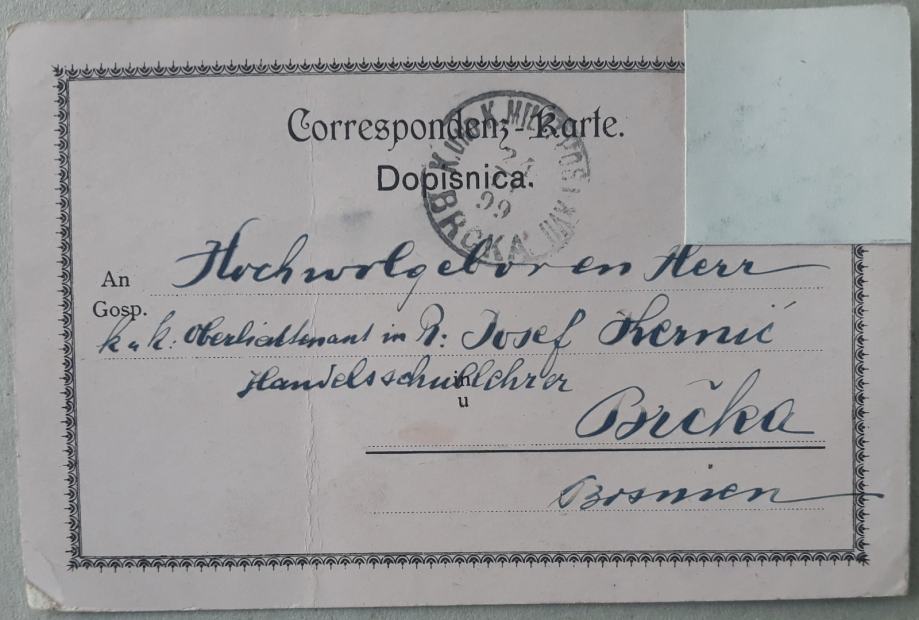 Correspondenz-Karte.
Dopisnica.
K. UND K. MILIT. POST XVII
99
BRČKA
An
Gosp.
Hochwolgeboren Herr
k u k: Oberlieutenant in R: Josef
Handelsschullehrer
in
u
Brčka
Bosnien